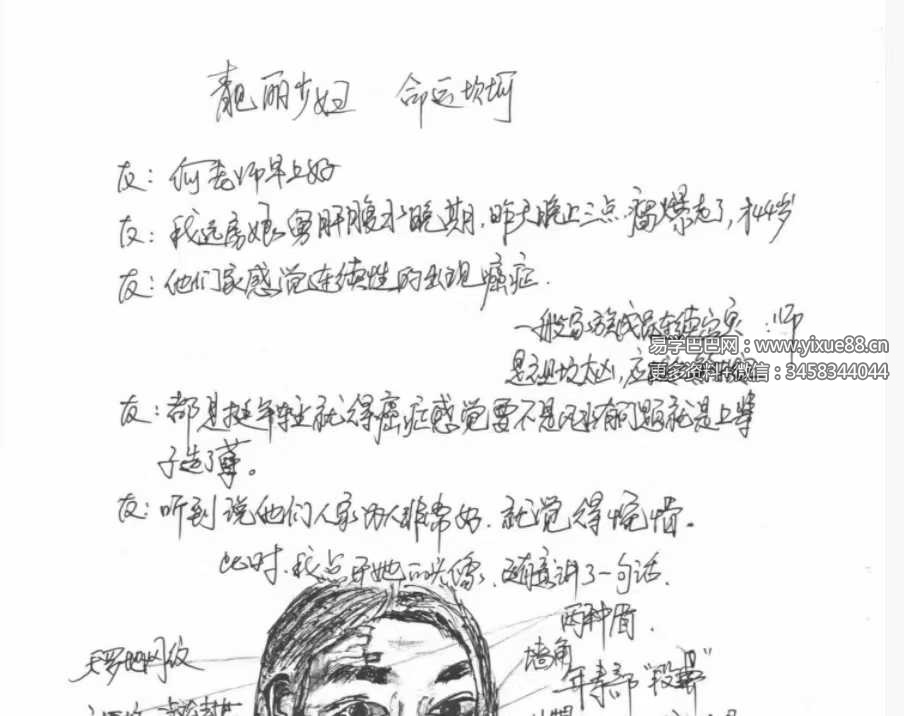 靓丽少妇 命运坎坷
友：何老师早上好
友：我远房娘舅肝腹水晚期，昨天晚上三点 走了，才44岁
友：他们家感觉连续性的出现癌症．
一般家族成员连续 ：师
易学巴巴网：www.yixue88.cn
是祖坟大凶，应
更多资料+微信：3458344044
友：都是挺年轻就得癌症感觉要不是风水有问题就是上辈
子造了孽。
友：听到说他们人家为人非常好．就觉得惋惜。
此时．我点开她的头像．随意讲了一句话．
两种眉．
天罗地网纹
墙角
年寿部